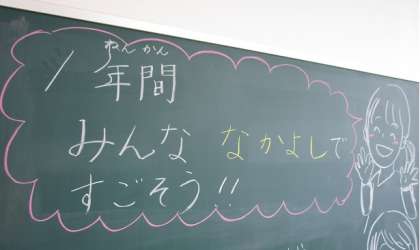 ねんかん
1年間
みんな なかよしで
すごそう!!